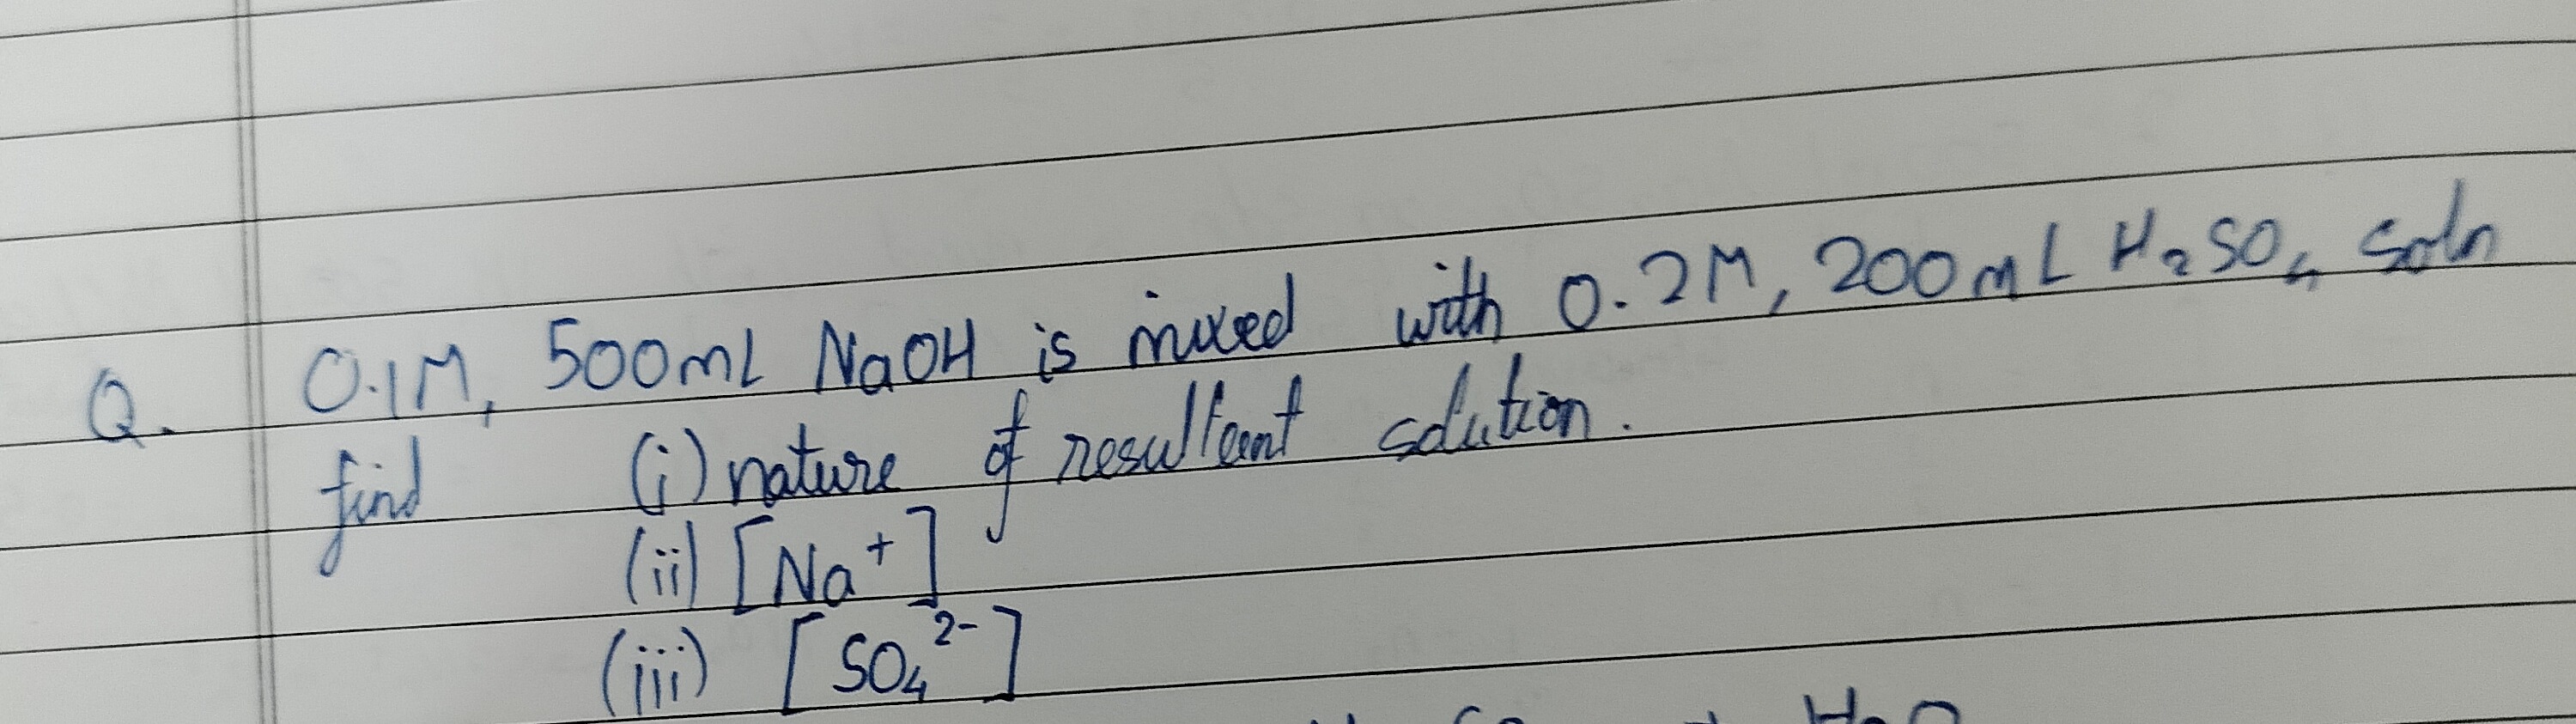 Q. 0.1M, 500mL NaOH is mixed with 0.2M, 200mL H₂SO₄ soln
find (i) nature of resultant solution.
(ii) [Na⁺]
(iii) [SO₄²⁻]
H₂O